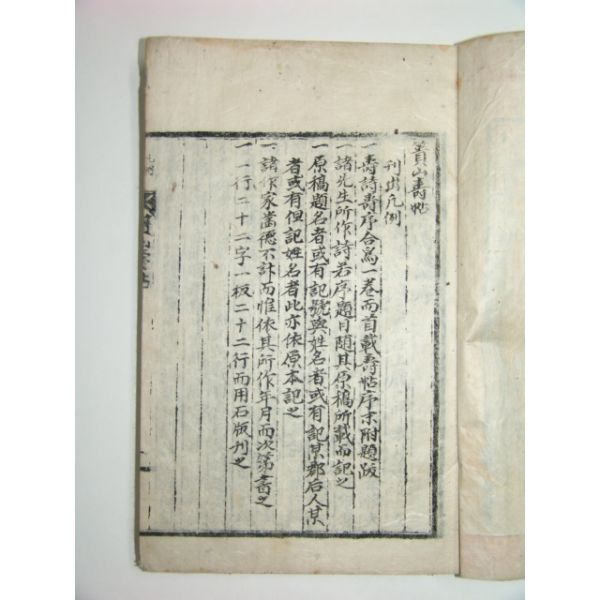 蕢山壽帖
刊出凡例
一壽詩壽序合爲一卷而首載壽帖序末附題跋
一諸先生所作詩若序題目隨其原稿所載而記之
一原稿題名者或有記號與姓名者或有記某郡后人某
者或有但記姓名者此亦依原本記之
一諸作家齒德不計而惟依其所作年月而次第書之
一一行二十二字一板二十二行而用石版刊之